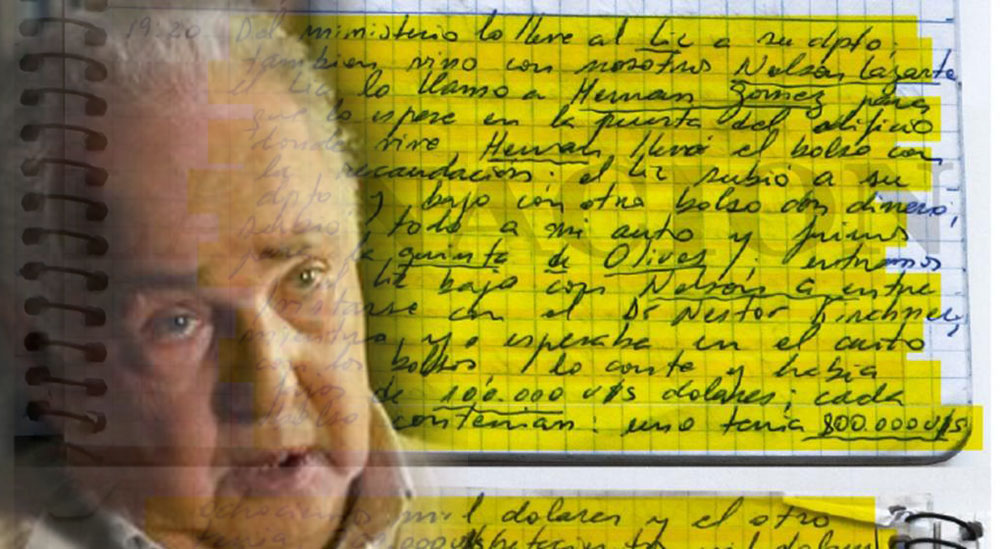 19:20 Del ministerio lo lleve al Lic a su dpto,
tambien vino con nosotros Nelson Lazarte
el Lic lo llamo a Hernan Gomez para
que lo espere en la puerta del edificio
donde vive Hernan llevó el bolso con
la recaudación; el Lic subió a su
dpto y bajo con otro bolso con dinero,
todo a mi auto y fuimos
la quinta de Olivos y entramos
Lic bajo con Nelson a entre
con el Dr Nestor Kirchner,
y o esperaba en el auto
con los bolsos, lo conte y habia
de 100.000 u$s dolares; cada
contenian: uno tenia 800.000 u$s
mil dolares y el otro
tenia